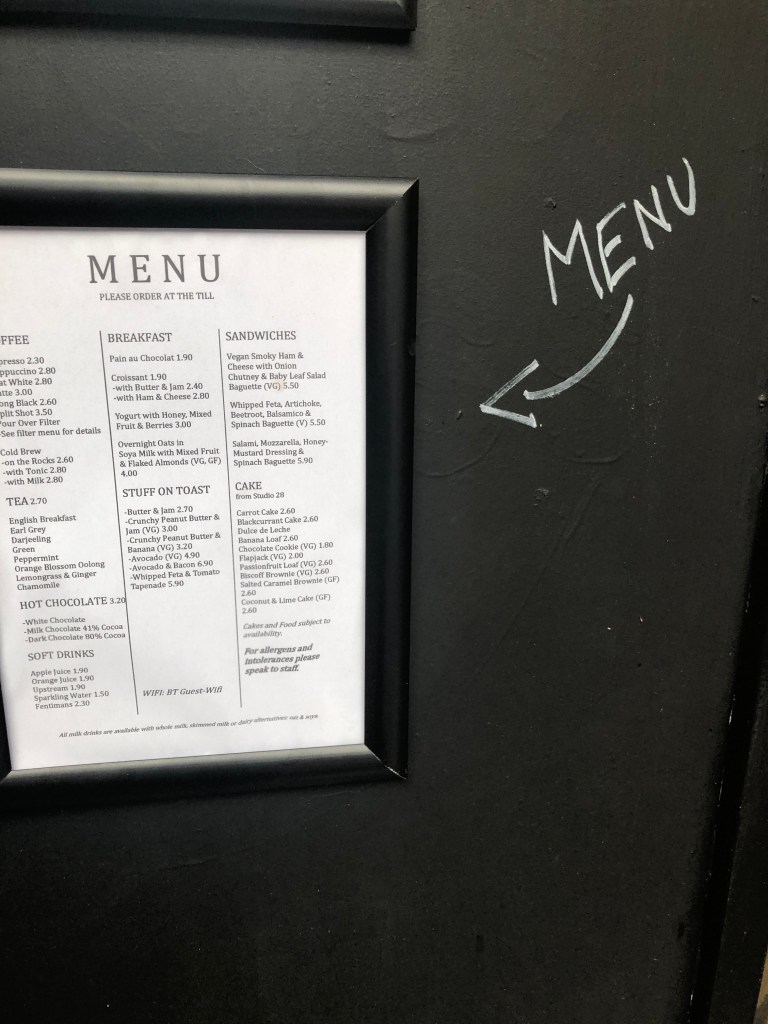 MENU
MENU
PLEASE ORDER AT THE TILL
FFEE
presso 2.30
ppuccino 2.80
at White 2.80
tte 3.00
ong Black 2.60
plit Shot 3.50
our Over Filter
-See filter menu for details
Cold Brew
-on the Rocks 2.60
-with Tonic 2.80
-with Milk 2.80
TEA 2.70
English Breakfast
Earl Grey
Darjeeling
Green
Peppermint
Orange Blossom Oolong
Lemongrass & Ginger
Chamomile
HOT CHOCOLATE 3.20
-White Chocolate
-Milk Chocolate 41% Cocoa
-Dark Chocolate 80% Cocoa
SOFT DRINKS
Apple Juice 1.90
Orange Juice 1.90
Upstream 1.90
Sparkling Water 1.50
Fentimans 2.30
BREAKFAST
Pain au Chocolat 1.90
Croissant 1.90
-with Butter & Jam 2.40
-with Ham & Cheese 2.80
Yogurt with Honey, Mixed
Fruit & Berries 3.00
Overnight Oats in
Soya Milk with Mixed Fruit
& Flaked Almonds (VG, GF)
4.00
STUFF ON TOAST
-Butter & Jam 2.70
-Crunchy Peanut Butter &
Jam (VG) 3.00
-Crunchy Peanut Butter &
Banana (VG) 3.20
-Avocado (VG) 4.90
-Avocado & Bacon 6.90
-Whipped Feta & Tomato
Tapenade 5.90
WIFI: BT Guest-Wifi
SANDWICHES
Vegan Smoky Ham &
Cheese with Onion
Chutney & Baby Leaf Salad
Baguette (VG) 5.50
Whipped Feta, Artichoke,
Beetroot, Balsamico &
Spinach Baguette (V) 5.50
Salami, Mozzarella, Honey-
Mustard Dressing &
Spinach Baguette 5.90
CAKE
from Studio 28
Carrot Cake 2.60
Blackcurrant Cake 2.60
Dulce de Leche
Banana Loaf 2.60
Chocolate Cookie (VG) 1.80
Flapjack (VG) 2.00
Passionfruit Loaf (VG) 2.60
Biscoff Brownie (VG) 2.60
Salted Caramel Brownie (GF)
2.60
Coconut & Lime Cake (GF)
2.60
Cakes and Food subject to
availability.
For allergens and
intolerances please
speak to staff.
All milk drinks are available with whole milk, skimmed milk or dairy alternatives: oat & soya